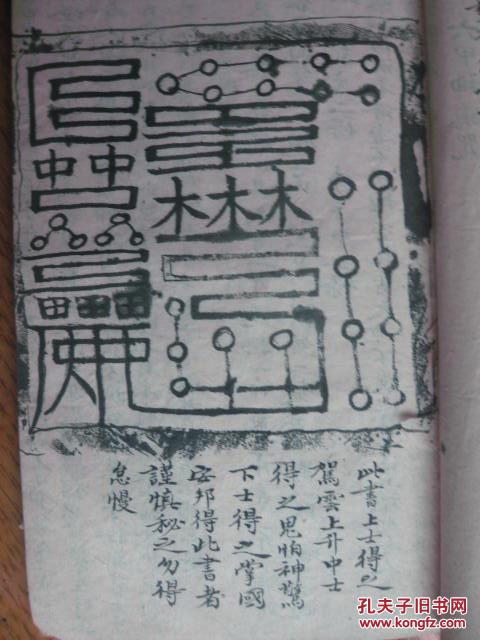 中中
木木木
此書上士得之
駕雲上升中士
得之鬼怕神驚
下士得之掌國
安邦得此書者
謹慎秘之勿得
怠慢
孔夫子旧书网
www.kongfz.com